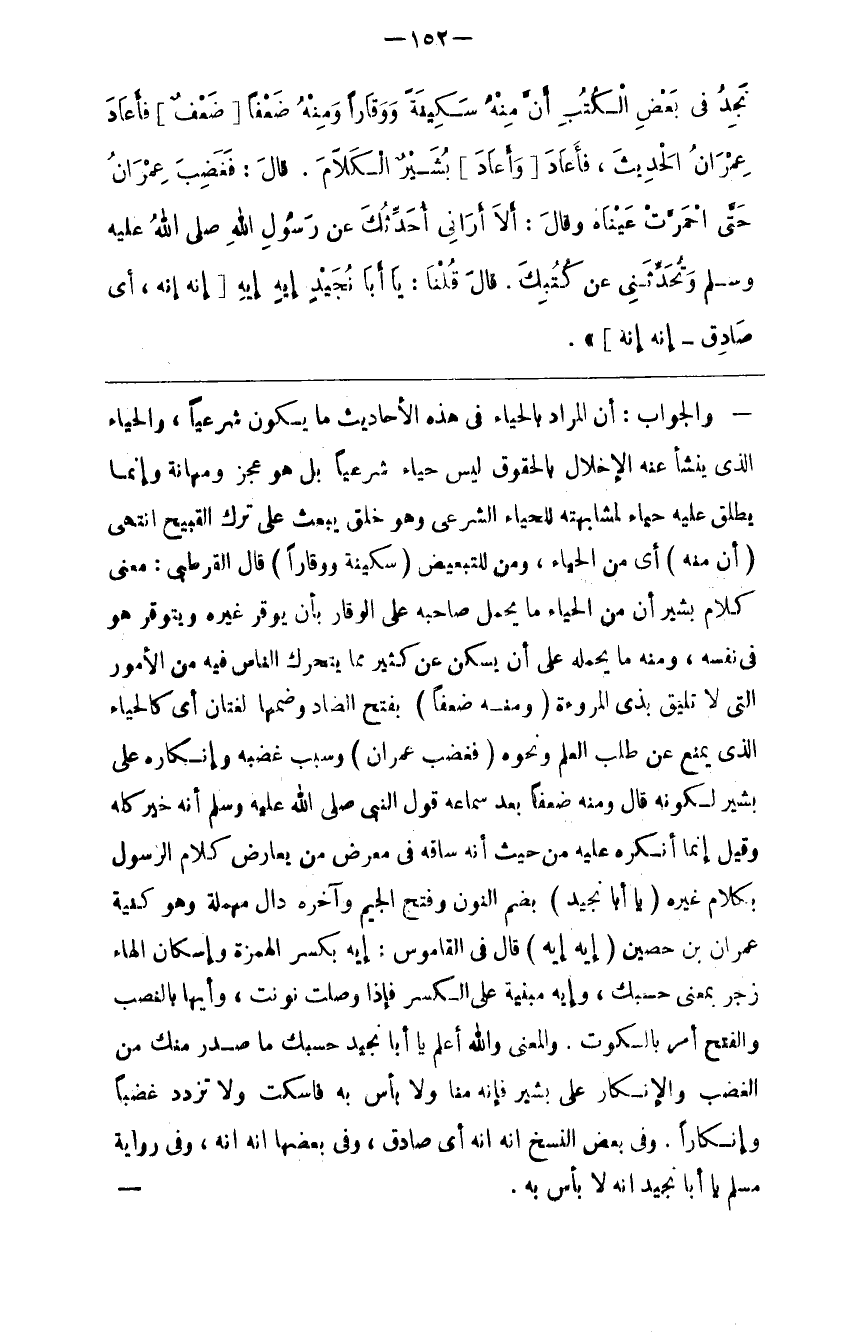 —١٥٢—
نَجِدُ فى بَعْضِ الْكُتُبِ أَنَّ مِنْهُ سَكِينَةً وَوَقَاراً وَمِنْهُ ضَعْفاً [ ضَعْفٌ ] فأَعَادَ
عِمْرَانُ الحَدِيثَ ، فأَعَادَ [ وَأَعَادَ ] بُشَيْرٌ الْكَلَامَ . قالَ : فَغَضِبَ عِمْرَانُ
حَتَّى احْمَرَّتْ عَيْنَاهُ وقالَ : أَلَا أَرَانِى أُحَدِّثُكَ عن رَسُولِ اللهِ صلى اللهُ عليه
وسلم وَتُحَدِّثَنِى عن كُتُبِكَ . قالَ قُلْنَا : يَا أَبَا نُجَيْدٍ إِيهٍ إِيهِ [ إنه إنه ، أى
صَادِق – إنه إنهُ ] » .
— والجواب : أن المراد بالحياء فى هذه الأحاديث ما يكون شرعياً ، والحياء
الذى ينشأ عنه الإخلال بالحقوق ليس حياء شرعياً بل هو عجز ومهانة وإنما
يطلق عليه حياء لمشابهته للحياء الشرعى وهو خلق يبعث على ترك القبيح انتهى
( أن منه ) أى من الحياء ، ومن للتبعيض ( سكينة ووقاراً ) قال القرطبى : معنى
كلام بشير أن من الحياء ما يحمل صاحبه على الوقار بأن يوقر غيره ويتوقر هو
فى نفسه ، ومنه ما يحمله على أن يسكن عن كثير مما يتحرك الناس فيه من الأمور
التى لا تليق بذى المروءة ( ومنه ضعفاً ) بفتح الضاد وضمها لغتان أى كالحياء
الذى يمنع عن طلب العلم ونحوه ( فغضب عمران ) وسبب غضبه وإنكاره على
بشير لكونه قال ومنه ضعفاً بعد سماعه قول النبى صلى الله عليه وسلم أنه خير كله
وقيل إنما أنكره عليه من حيث أنه ساقه فى معرض من يعارض كلام الرسول
بكلام غيره ( يا أبا نجيد ) بضم النون وفتح الجيم وآخره دال مهملة وهو كنية
عمران بن حصين ( إيه إيه ) قال فى القاموس : إيه بكسر الهمزة وإسكان الهاء
زجر بمعنى حسبك ، وإيه مبنية على الكسر فإذا وصلت نونت ، وأيها بالنصب
والفتح أمر بالسكوت . والمعنى والله أعلم يا أبا نجيد حسبك ما صدر منك من
الغضب والإنكار على بشير فإنه منا ولا بأس به فاسكت ولا تزدد غضباً
وإنكاراً . وفى بعض النسخ انه انه أى صادق ، وفى بعضها انه انه ، وفى رواية
مسلم يا أبا نجيد انه لا بأس به . —